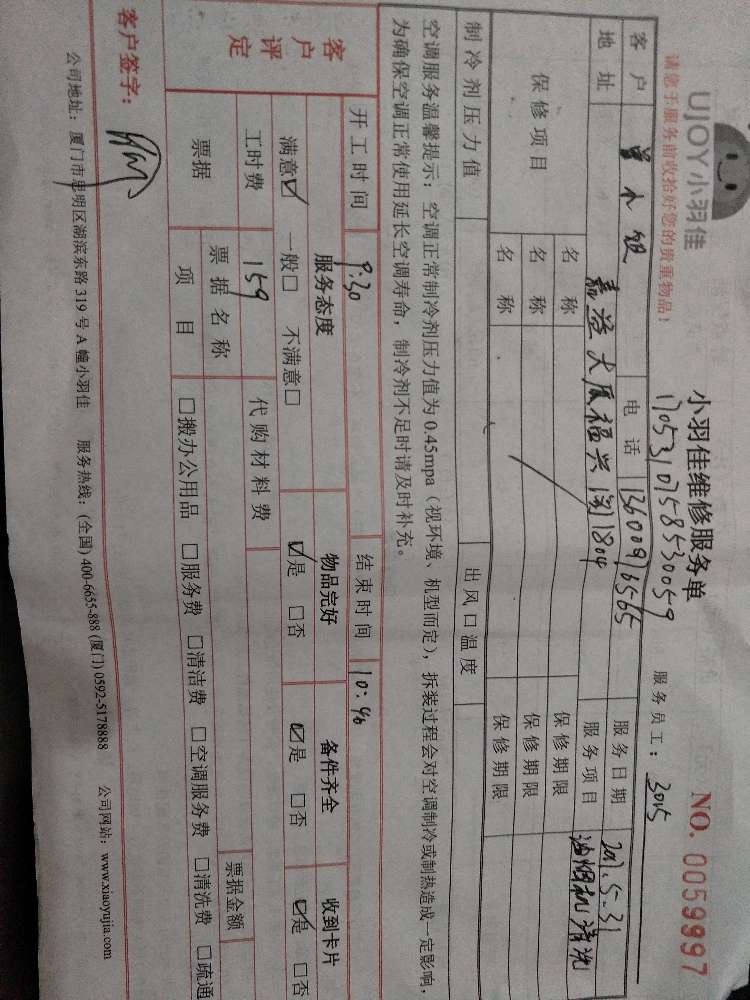 UJOY小羽佳
小羽佳维修服务单
NO. 0059997
1705310758530059
请您于服务前收拾好您的贵重物品!
服务员工: 3015
客户 曾小姐 电话 13600976565 服务日期 2017.5.31
地址 嘉益大厦福兴阁1804 服务项目 油烟机清洗
保修项目
名称 保修期限
名称 保修期限
名称 保修期限
制冷剂压力值 出风口温度
空调服务温馨提示: 空调正常制冷剂压力值为 0.45mpa (视环境、机型而定), 拆装过程会对空调制冷或制热造成一定影响,
为确保空调正常使用延长空调寿命, 制冷剂不足时请及时补充。
开工时间 9:30 结束时间 10:46
客户评定
服务态度 物品完好 备件齐全 收到卡片
满意☑ 一般□ 不满意□ ☑是 □否 ☑是 □否 ☑是 □否
工时费 159 代购材料费
票据 票据名称 票据金额
项目 □搬办公用品 □服务费 □清洁费 □空调服务费 □清洗费 □疏通
客户签字:
公司地址: 厦门市思明区湖滨东路 319 号 A 幢小羽佳 服务热线: (全国) 400-6655-888 (厦门) 0592-5178888 公司网站: www.xiaoyujia.com